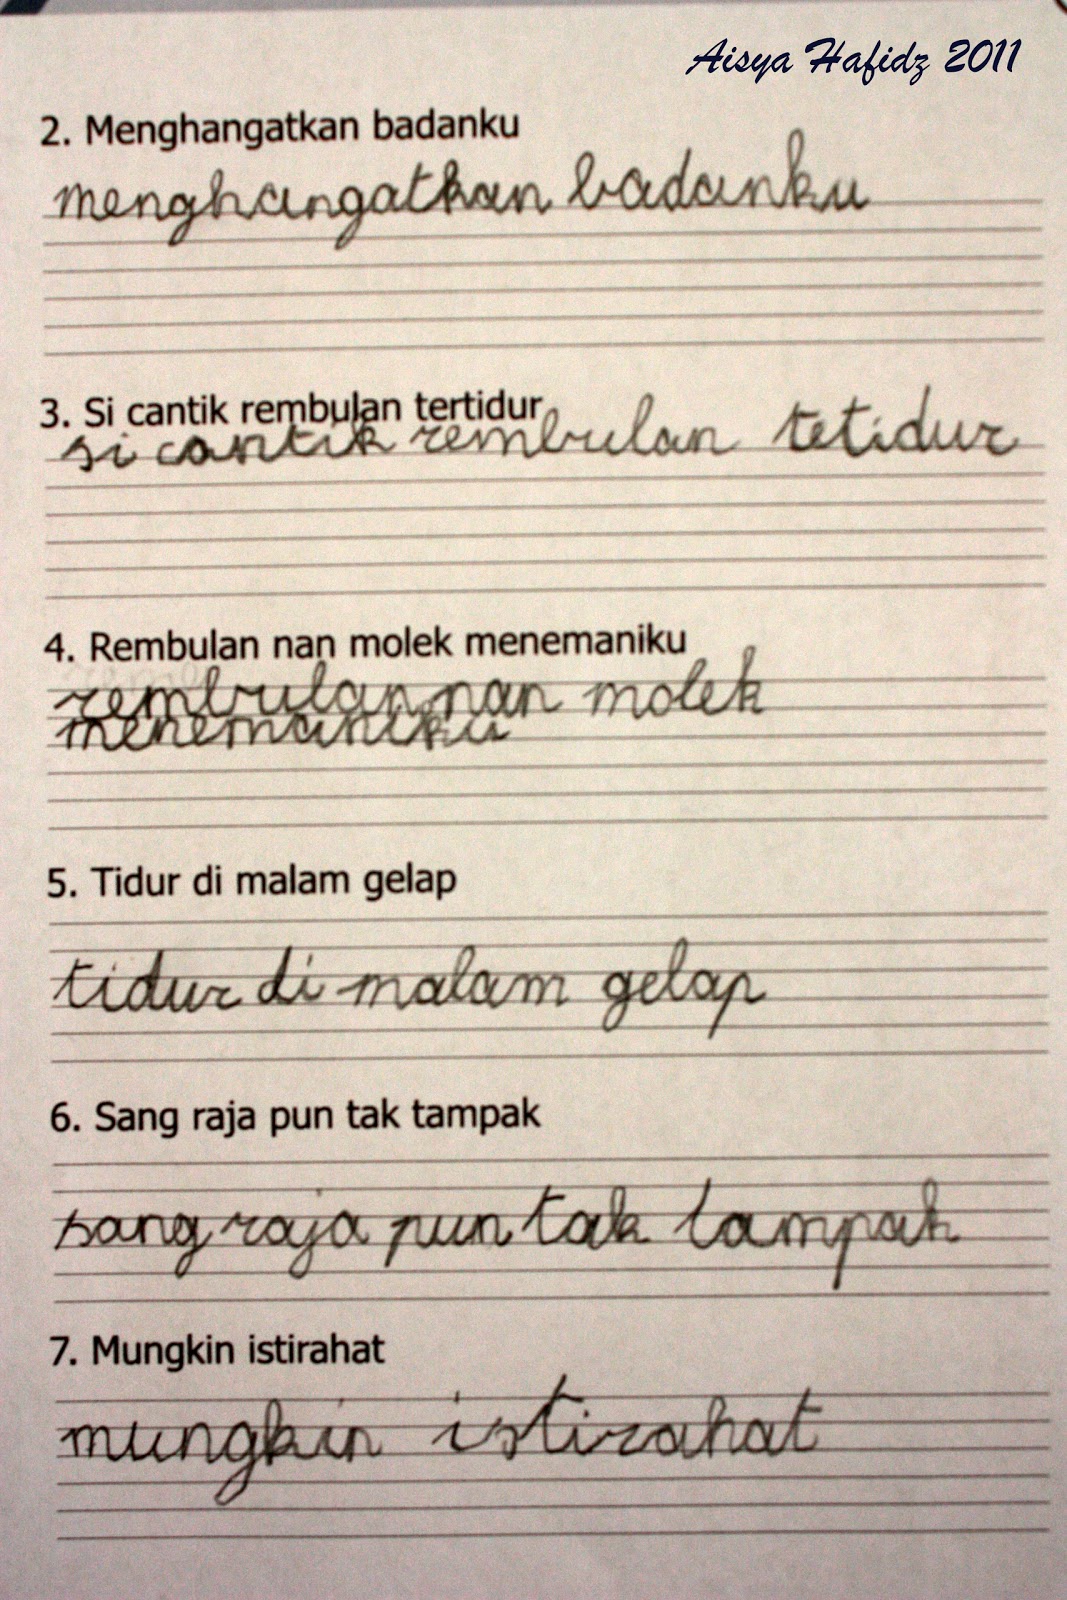 Aisya Hafidz 2011
2. Menghangatkan badanku
menghangatkan badanku
3. Si cantik rembulan tertidur
si cantik rembulan tetidur
4. Rembulan nan molek menemaniku
rembulan nan molek
menemaniku
5. Tidur di malam gelap
tidur di malam gelap
6. Sang raja pun tak tampak
sang raja pun tak tampak
7. Mungkin istirahat
mungkin istirahat